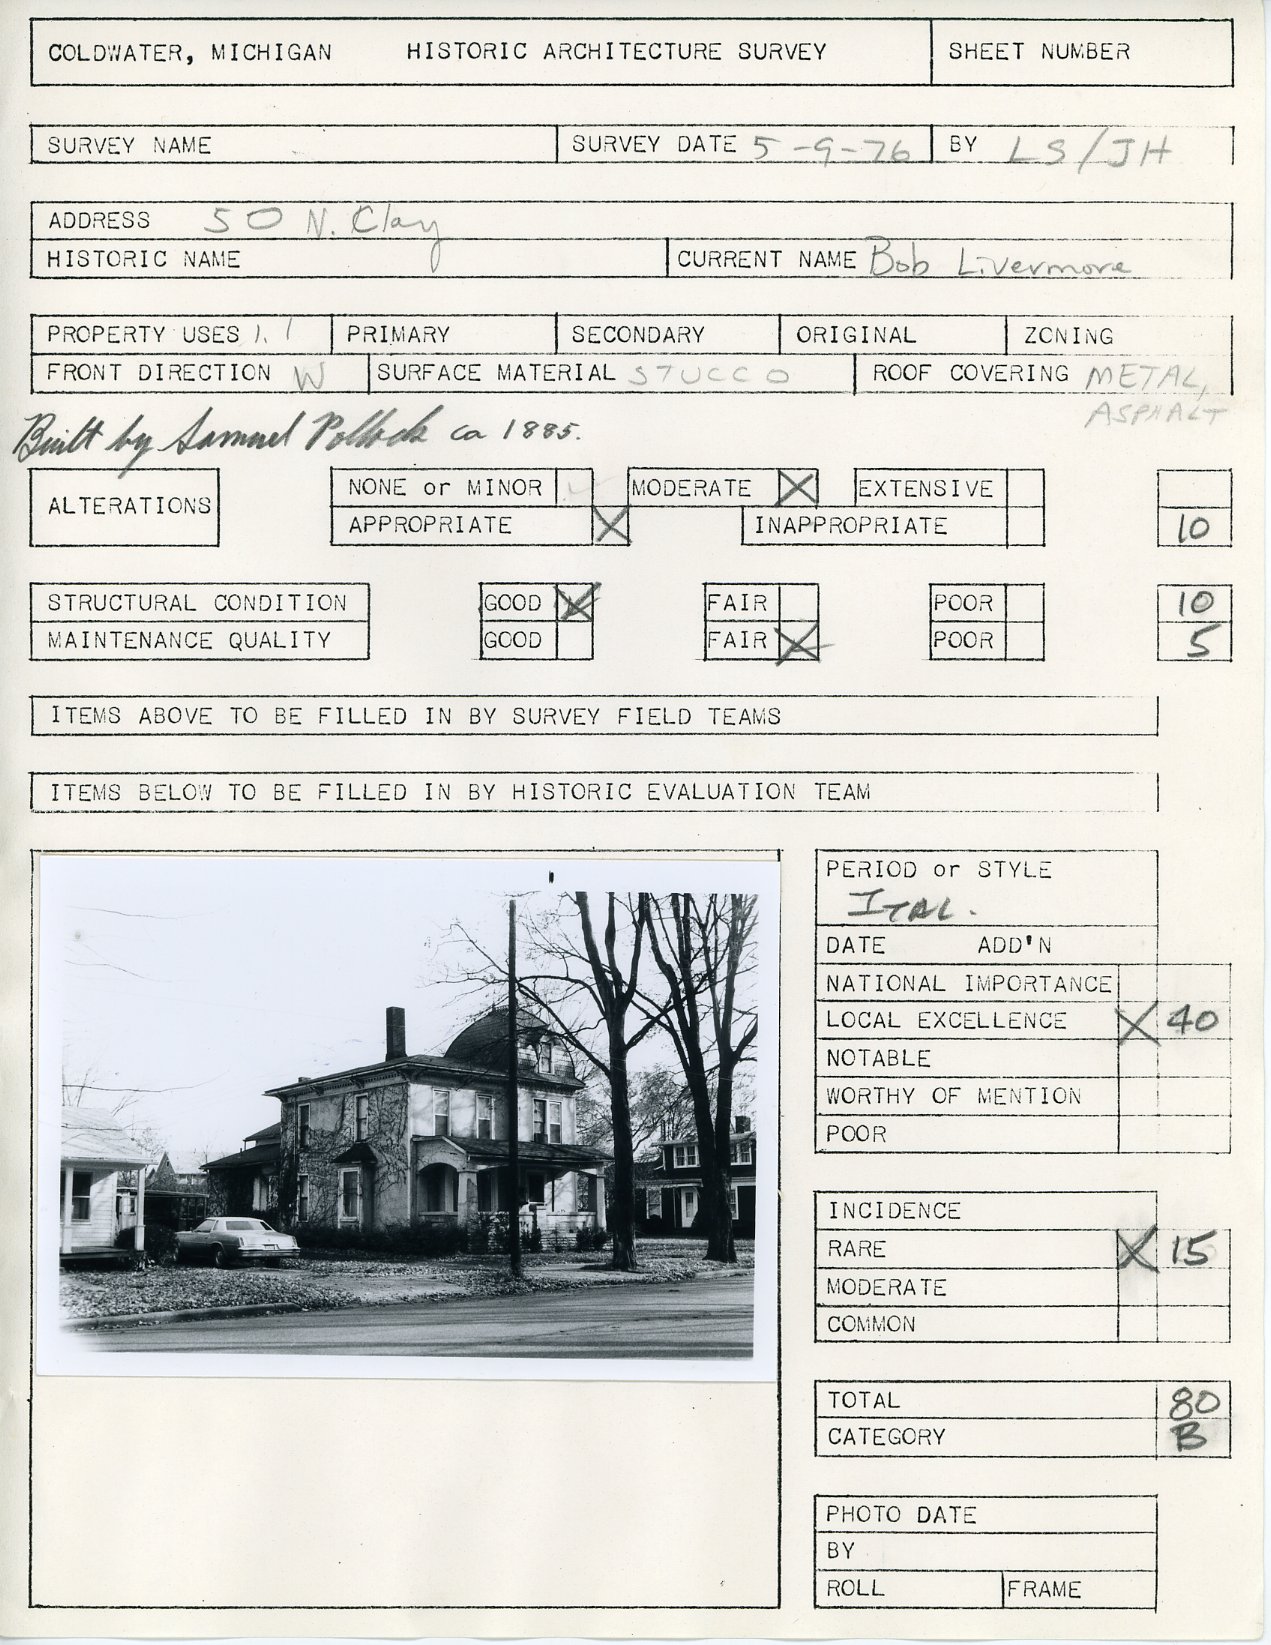 COLDWATER, MICHIGAN HISTORIC ARCHITECTURE SURVEY SHEET NUMBER
SURVEY NAME SURVEY DATE 5-9-76 BY LS/JH
ADDRESS 50 N. Clay
HISTORIC NAME CURRENT NAME Bob Livermore
PROPERTY USES 1.1 PRIMARY SECONDARY ORIGINAL ZONING
FRONT DIRECTION W SURFACE MATERIAL STUCCO ROOF COVERING METAL,
ASPHALT
Built by Samuel Pollock ca 1885.
ALTERATIONS NONE or MINOR MODERATE X EXTENSIVE
APPROPRIATE X INAPPROPRIATE 10
STRUCTURAL CONDITION GOOD X FAIR POOR 10
MAINTENANCE QUALITY GOOD FAIR X POOR 5
ITEMS ABOVE TO BE FILLED IN BY SURVEY FIELD TEAMS
ITEMS BELOW TO BE FILLED IN BY HISTORIC EVALUATION TEAM
PERIOD or STYLE
ITAL.
DATE ADD'N
NATIONAL IMPORTANCE
LOCAL EXCELLENCE X 40
NOTABLE
WORTHY OF MENTION
POOR
INCIDENCE
RARE X 15
MODERATE
COMMON
TOTAL 80
CATEGORY B
PHOTO DATE
BY
ROLL FRAME